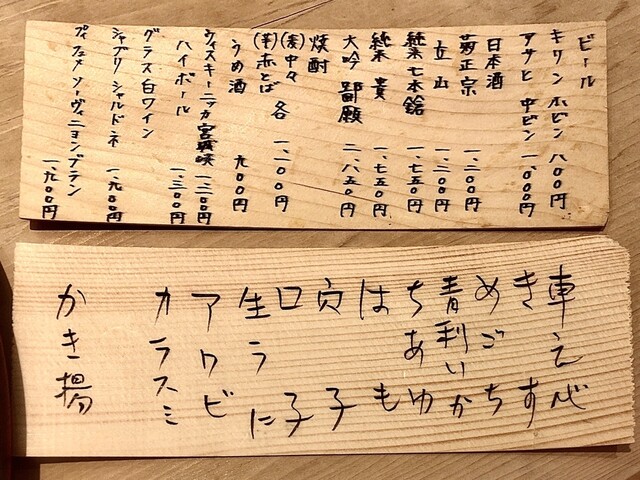 ビール
キリン 小ビン 八〇〇円
アサヒ 中ビン 一、〇〇〇円
日本酒
菊正宗 一、二〇〇円
立山 一、二〇〇円
純米 七本鎗 一、七五〇円
純米 貴 一、七五〇円
大吟 二、八五〇円
焼酎
(麦)中々 各 一、一〇〇円
(芋)赤とば
うめ酒 九〇〇円
ウィスキーニッカ宮城峡 一、二〇〇円
ハイボール 一、三〇〇円
グラス白ワイン
シャブリ シャルドネ 一、九〇〇円
ピュイフュメ ソーヴィニヨンブラン 一、九〇〇円
車えび
きす
めごち
青利いか
ちあゆ
はも
穴子
口子
生うに
アワビ
カラスミ
かき揚